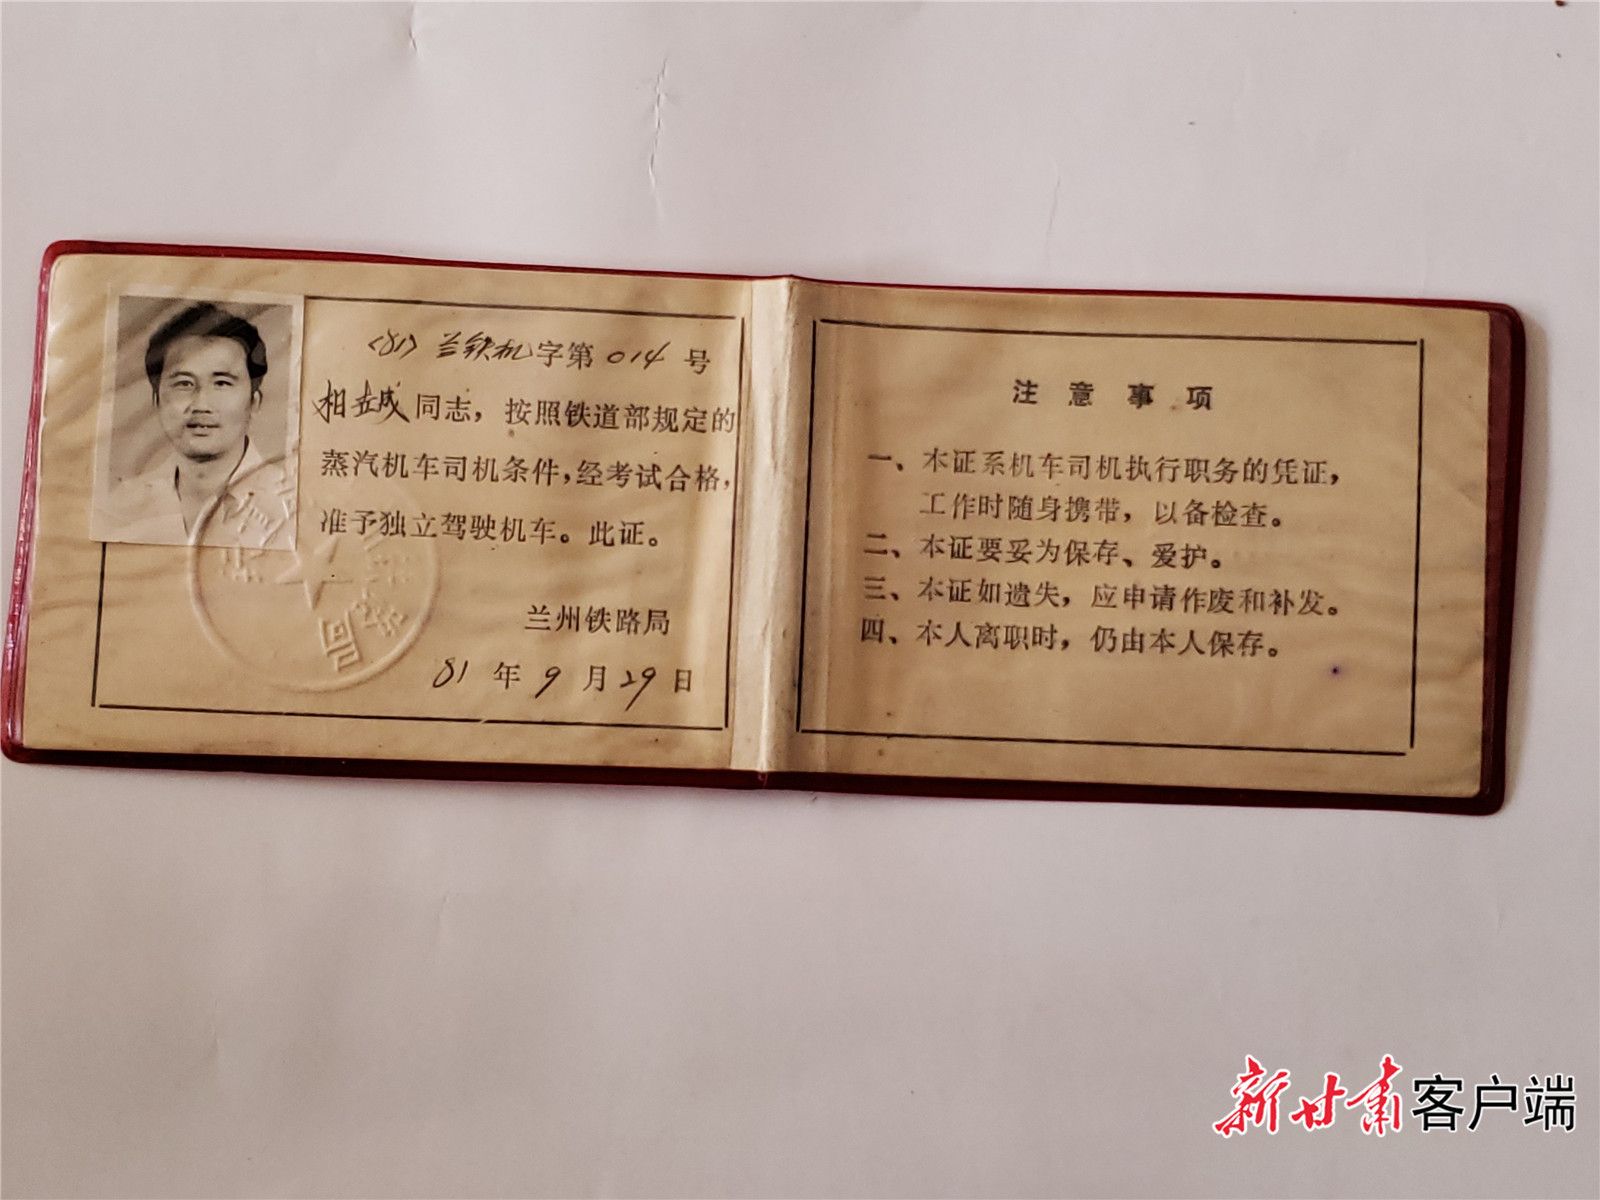 (81)兰铁机字第014号
相立成同志，按照铁道部规定的
蒸汽机车司机条件，经考试合格，
准予独立驾驶机车。此证。
兰州铁路局
81年9月29日
注意事项
一、本证系机车司机执行职务的凭证，
工作时随身携带，以备检查。
二、本证要妥为保存、爱护。
三、本证如遗失，应申请作废和补发。
四、本人离职时，仍由本人保存。
新甘肃客户端